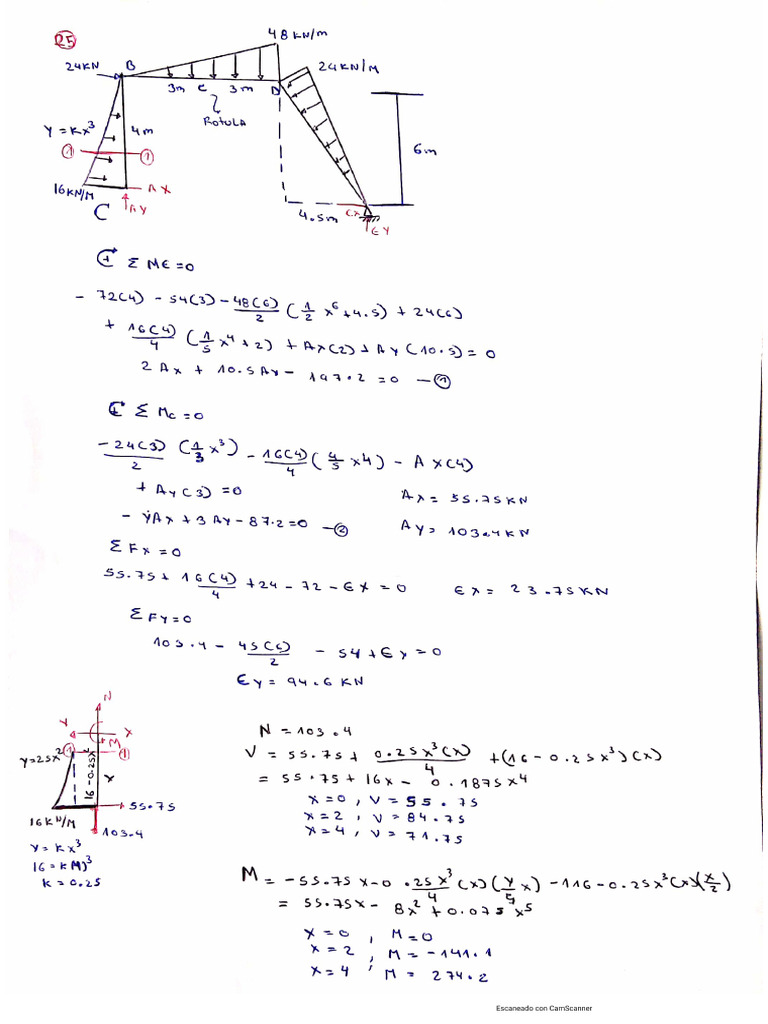 25
48 KN/m
24KN B
24KN/M
3m C 3m D
ROTULA
Y = KX³
4m
6m
1 1
16KN/M
AX
AY
C
4.5m
EX
EY
+ Σ ME=0
- 72(4) - 54(3) - 48(6)/2 (1/2 x⁶+4.5) + 24(6)
+ 16(4)/4 (1/5 x⁴+2) + Ax(2) + Ay(10.5) = 0
2Ax + 10.5Ay - 197.2 = 0 - 1
+ Σ Mc=0
-24(3)/2 (1/3 x³) - 16(4)/4 (4/5 x4) - AX(4)
+ Ay(3) = 0
Ax = 55.75KN
- YAx + 3Ay - 87.2=0 - 2
AY= 103.4KN
ΣFX=0
55.75 + 16(4)/4 + 24 - 72 - EX = 0
EX = 23.75KN
ΣFY=0
103.4 - 45(6)/2 - 54 + EY = 0
EY = 94.6 KN
N
Y
X
M
1 1
16 - 0.25X
X
55.75
16KN/M
103.4
Y = KX³
K = 0.25
N = 103.4
V = 55.75 + 0.25x³(x)/4 + (16 - 0.25x³)(x)
= 55.75 + 16x - 0.1875x⁴
X=0, V = 55.75
X=2, V = 84.75
X=4, V = 71.75
M = -55.75x - 0.25x³/4 (x)(y/5 x) - 116 - 0.25x³(x)(x/2)
= 55.75x - 8x² + 0.075x⁵
X=0, M=0
X=2, M=-141.1
X=4, M= 274.2
Escaneado con CamScanner